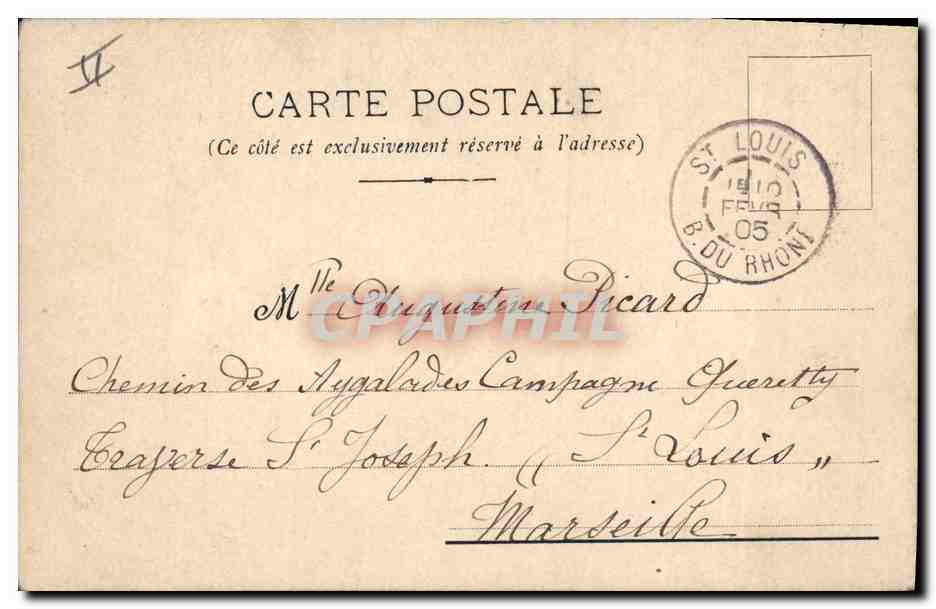 VI
CARTE POSTALE
(Ce côté est exclusivement réservé à l'adresse)
ST LOUIS
FEVR
05
B. DU RHONE
Mlle Augustine Picard
CPAPHIL
Chemin des Aygalades Campagne Queretty
Traverse St Joseph. "St Louis"
Marseille